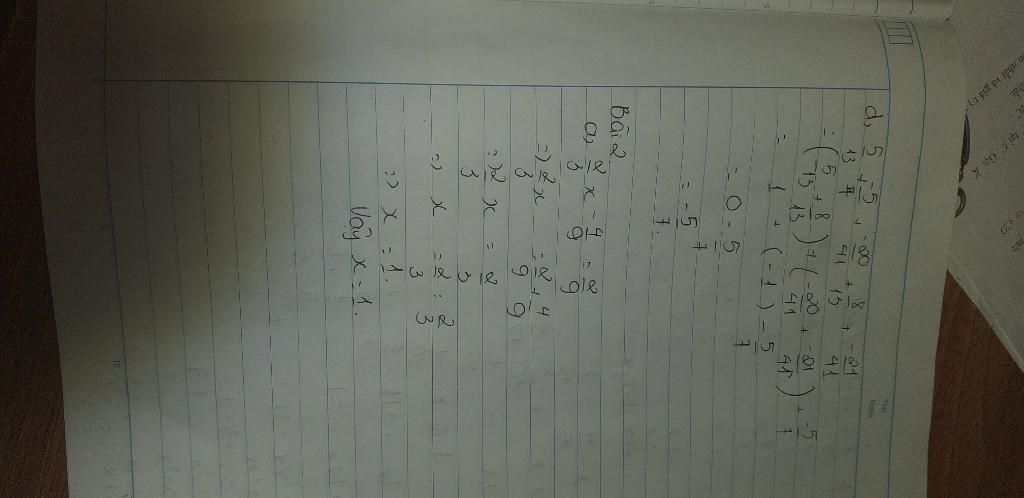 d, 5/13 + -5/7 + -20/41 + 8/13 + -21/41
= (5/13 + 8/13) + (-20/41 + -21/41) + -5/7
= 1 + (-1) - 5/7
= 0 - 5/7
= -5/7.
Bài 2
a, 2/3 x - 4/9 = 2/9
=> 2/3 x = 2/9 + 4/9
=> 2/3 x = 2/3
=> x = 2/3 : 2/3
=> x = 1.
Vậy x = 1.
Thứ
Ngày